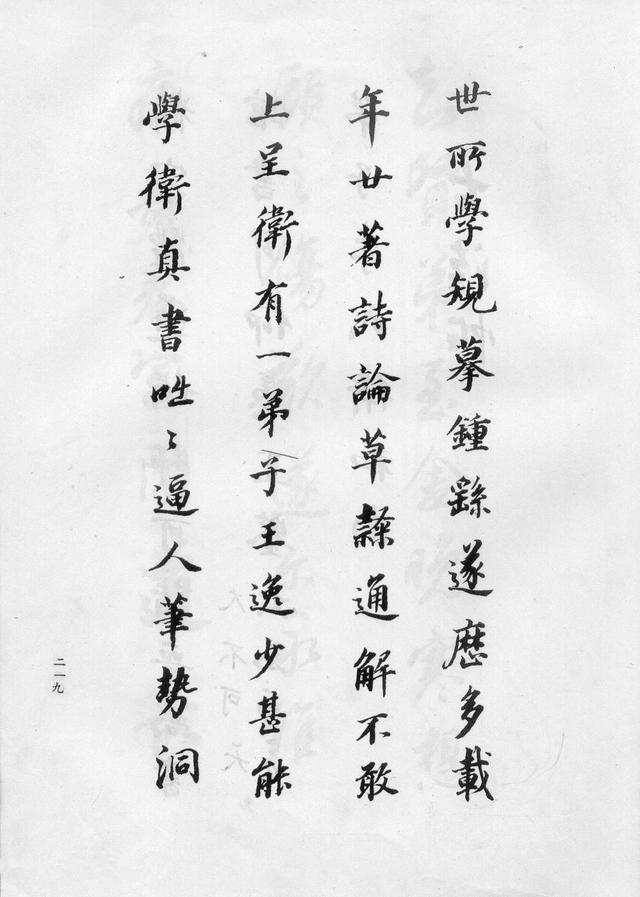 世所學規摹鍾繇遂歷多載
年廿著詩論草隸通解不敢
上呈衛有一弟子王逸少甚能
學衛真書咄〻逼人筆勢洞
二一九